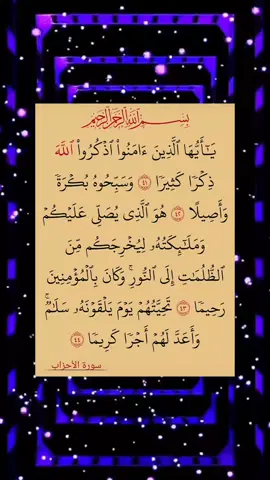 بِسْمِ ٱللَّهِ ٱلرَّحْمَٰنِ ٱلرَّحِيمِ
يَـٰٓأَيُّهَا ٱلَّذِينَ ءَامَنُوا۟ ٱذْكُرُوا۟ ٱللَّهَ
ذِكْرًا كَثِيرًا ٤١ وَسَبِّحُوهُ بُكْرَةً
وَأَصِيلًا ٤٢ هُوَ ٱلَّذِى يُصَلِّى عَلَيْكُمْ
وَمَلَـٰٓئِكَتُهُۥ لِيُخْرِجَكُم مِّنَ
ٱلظُّلُمَـٰتِ إِلَى ٱلنُّورِ ۚ وَكَانَ بِٱلْمُؤْمِنِينَ
رَحِيمًا ٤٣ تَحِيَّتُهُمْ يَوْمَ يَلْقَوْنَهُۥ سَلَـٰمٌ ۚ
وَأَعَدَّ لَهُمْ أَجْرًا كَرِيمًا ٤٤
سورة الأحزاب